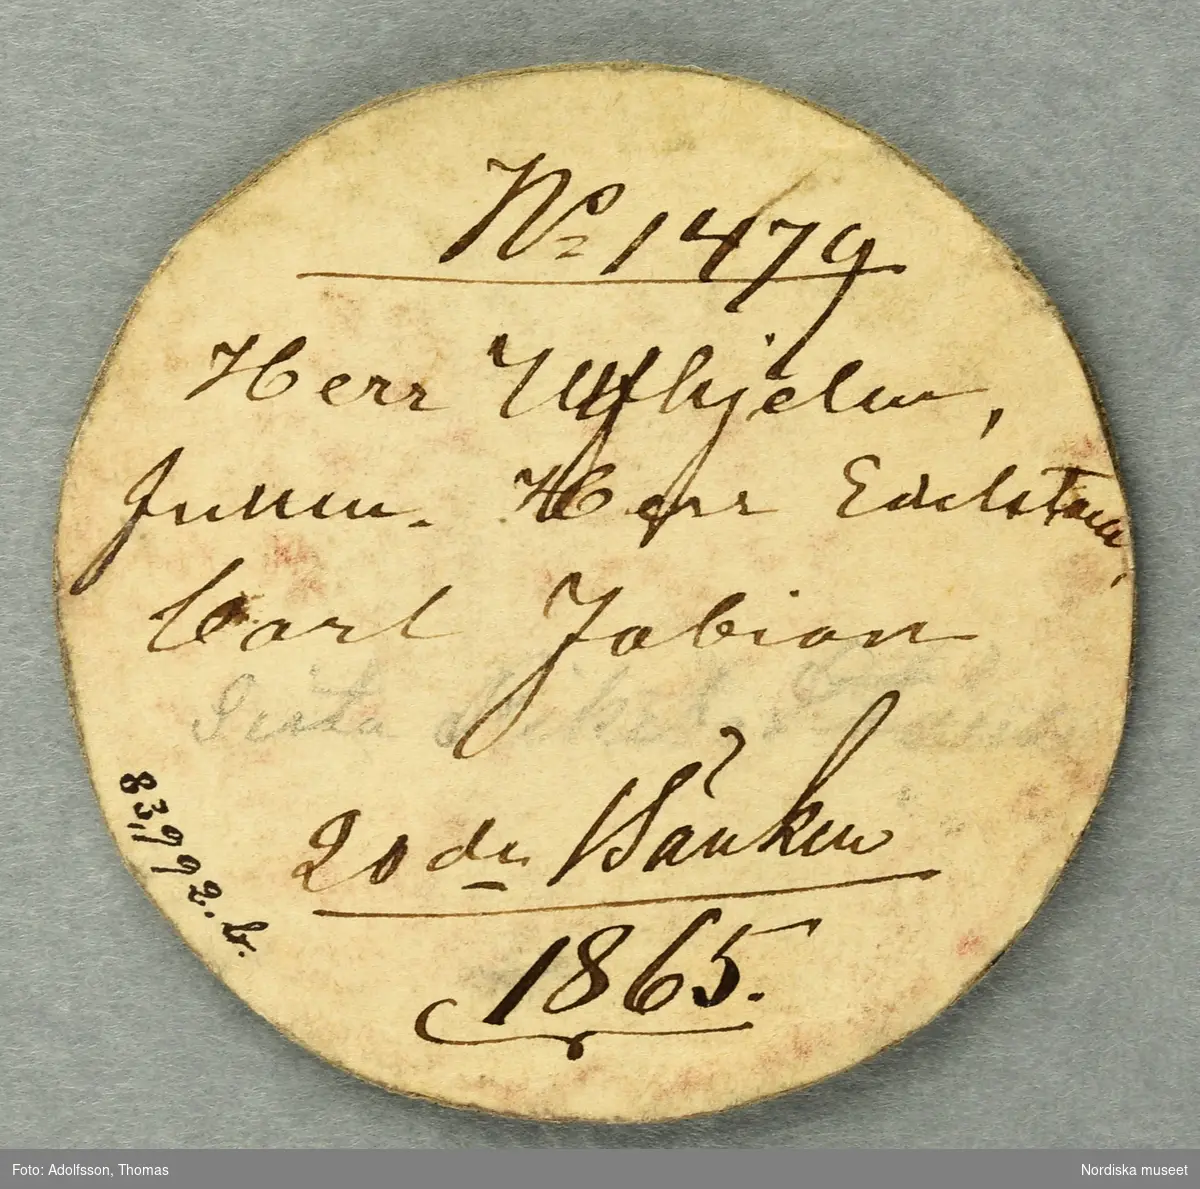 No 1479
Herr Ulfhjelm,
Junior. Herr Edelstam,
Carl Fabian
Sista
20de Bänken
1865.
83,992.b.
Foto: Adolfsson, Thomas
Nordiska museet